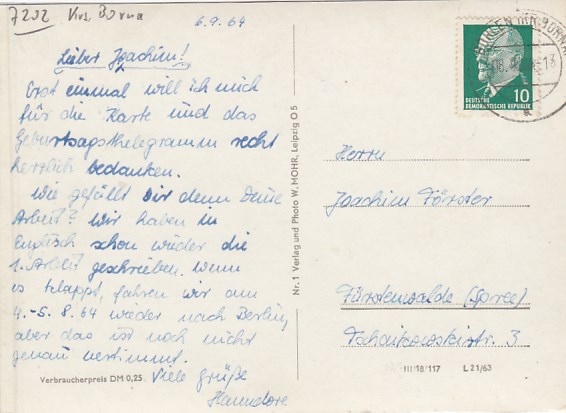 7202 Krs. Borna
6.9.64
Lieber Joachim!
Erst einmal will ich mich
für die Karte und das
Geburtsagstelegramm recht
herzlich bedanken.
Wie gefällt Dir denn Deine
Arbeit? Wir haben in
Englisch schon wieder die
1. Arbeit geschrieben. Wenn
es klappt, fahren wir am
4.-5.8.64 wieder nach Berlin,
aber das ist noch nicht
genau bestimmt.
Viele Grüße
Hannelore
Verbraucherpreis DM 0,25
Nr. 1 Verlag und Photo W. MOHR, Leipzig O 5
10
DEUTSCHE
DEMOKRATISCHE REPUBLIK
Herrn
Joachim Förster
Fürstenwalde (Spree)
Tschaikowskistr. 3
III/18/117 L 21/63